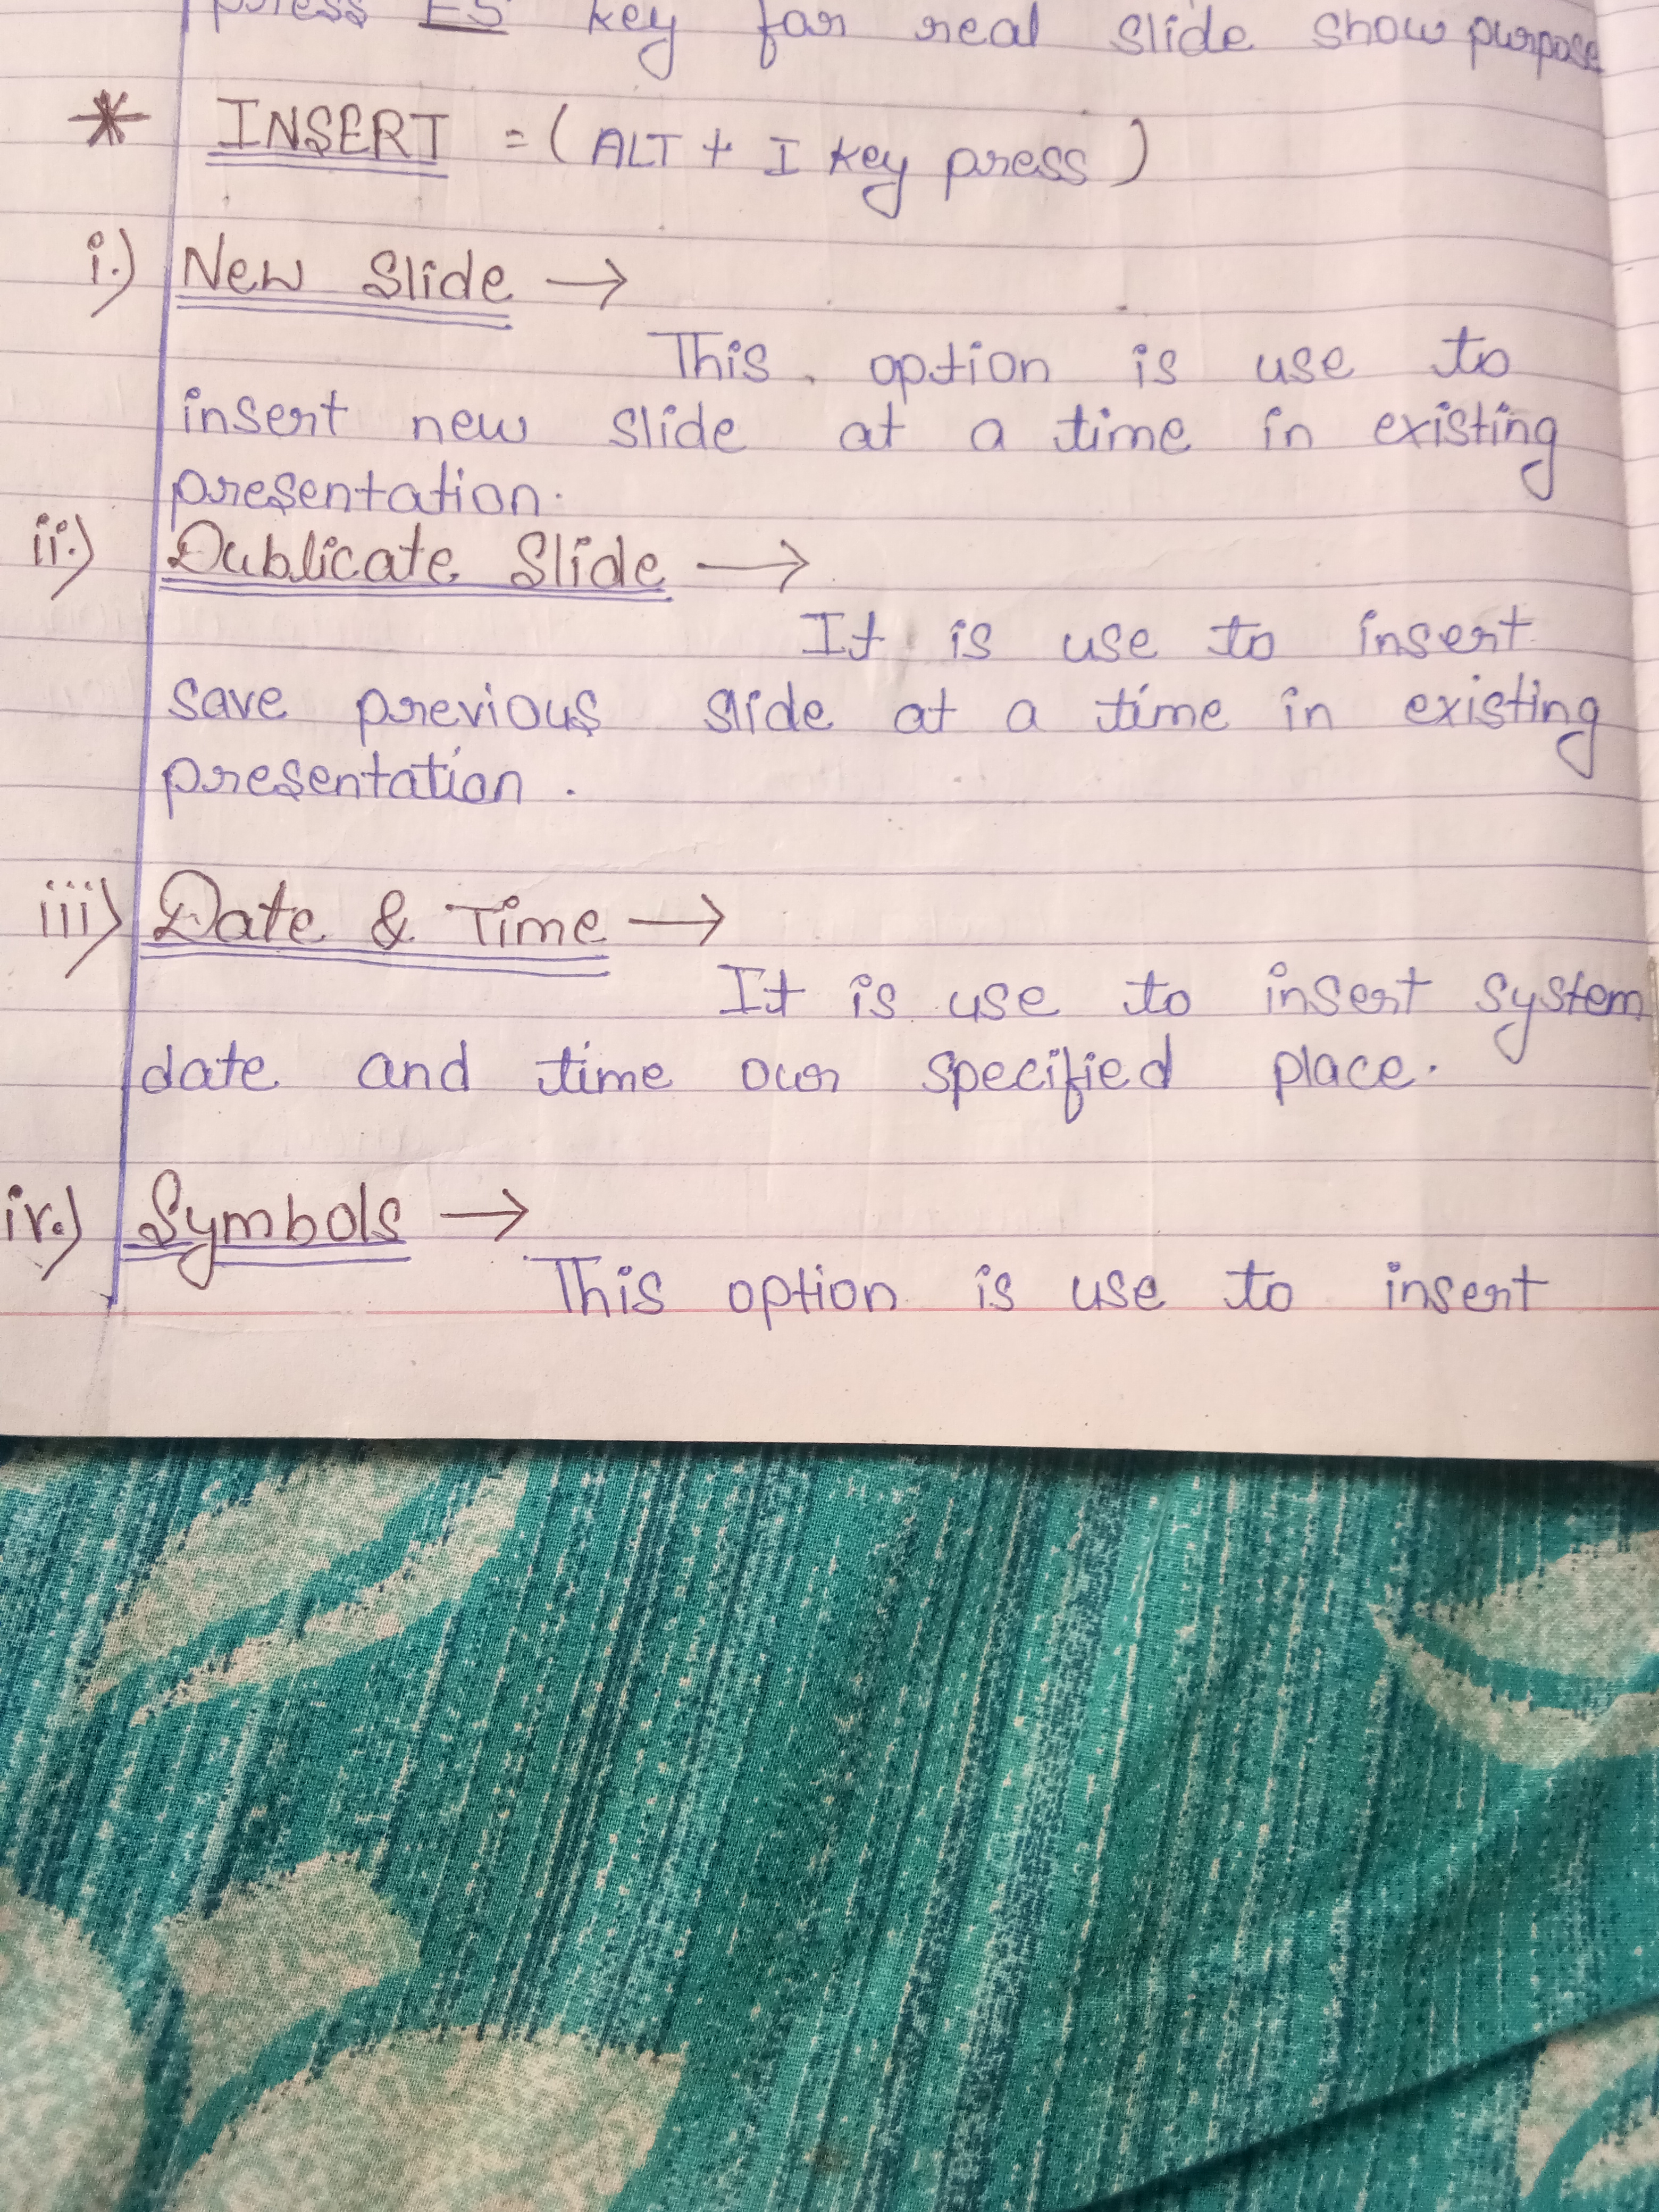 press F5 key for real slide show purpose
* INSERT = (ALT + I key press)
i.) New Slide →
This option is use to
insert new slide at a time in existing
presentation.
ii.) Dublicate Slide →
It is use to insert
save previous slide at a time in existing
presentation.
iii) Date & Time →
It is use to insert system
date and time our specified place.
iv.) Symbols →
This option is use to insert